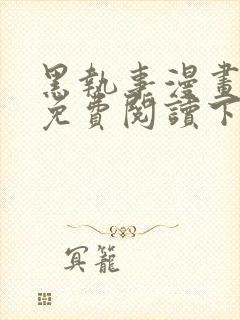 黑執事漫畫
免費閱讀下
冥籠